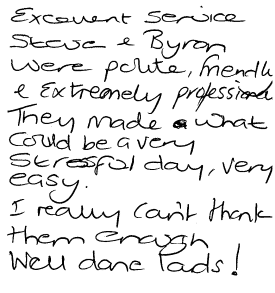 Excellent Service
Steve & Byron
Were polite, friendly
& Extremely professional
They made a what
Could be a very
Stressful day, very
easy.
I really can't thank
them enough
Well done lads!